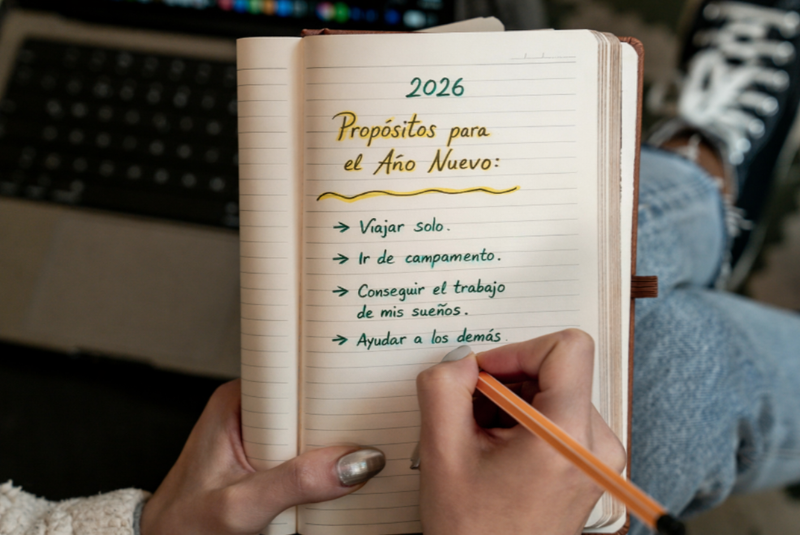 2026
Propósitos para
el Año Nuevo:
→ Viajar solo.
→ Ir de campamento.
→ Conseguir el trabajo
de mis sueños.
→ Ayudar a los demás.